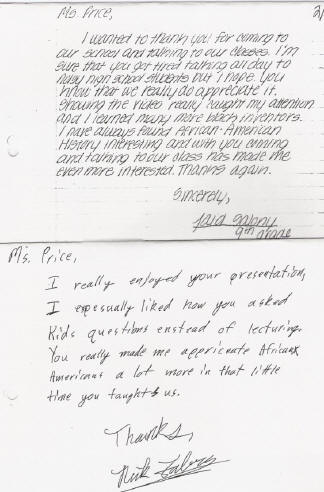 Ms. Price,
I wanted to thank you for coming to
our school and talking to our classes. I'm
sure that you got tired talking all day to
noisy high school students but I hope you
know that we really do appreciate it.
Showing the video really caught my attention
and I learned many more black inventors.
I have always found African-American
History interesting and with you coming
and talking to our class has made me
even more interested. Thanks again.
Sincerely,
9th grade
Ms. Price,
I really enjoyed your presentation,
I expesually liked how you asked
Kids questions enstead of lecturing.
You really made me appriciate African
Americans a lot more in that little
time you taught us.
Thanks,
Nick